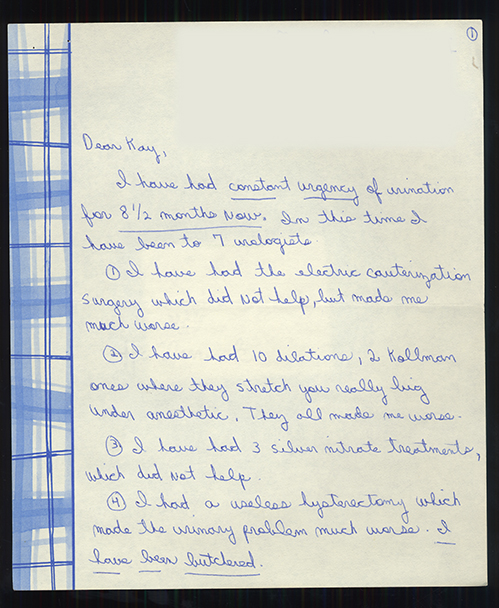 ①
Dear Kay,
I have had constant urgency of urination
for 8 1/2 months now. In this time I
have been to 7 urologists
① I have had the electric cauterization
surgery which did not help, but made me
much worse.
② I have had 10 dilations, 2 Kollman
ones where they stretch you really big
under anesthetic. They all made me worse.
③ I have had 3 silver nitrate treatments,
which did not help.
④ I had a useless hysterectomy which
made the urinary problem much worse. I
have been butchered.